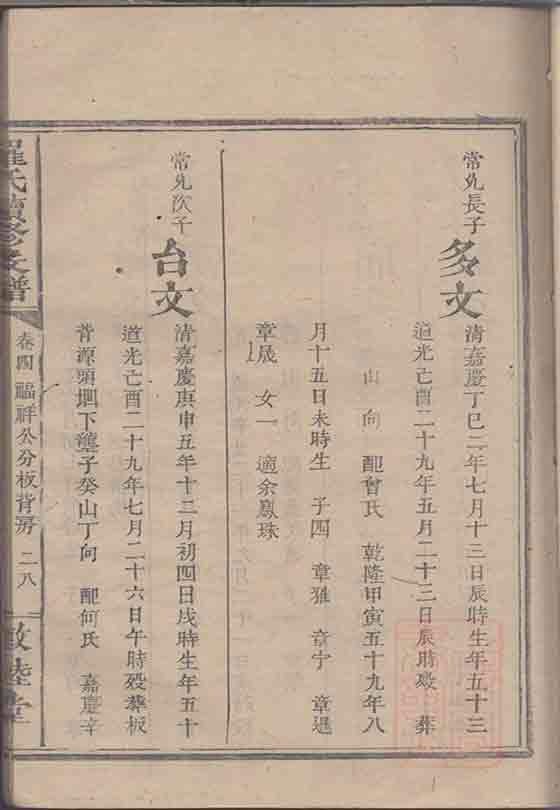 常允長子
多文
清嘉慶丁巳二年七月十三日辰時生年五十三
道光己酉二十九年五月二十三日辰時歿 葬
山 向 配曾氏 乾隆甲寅五十九年八
月十五日未時生 子四 章雅 章宁 章選
章晟 女一 適余鳳珠
常允次子
台文
清嘉慶庚申五年十二月初四日戌時生年五十
道光己酉二十九年七月二十六日午時歿葬板
背源頭堋下龔子癸山丁向 配何氏 嘉慶辛
羅氏續修支譜
卷四 福祥公分板背房 二八
敦睦堂